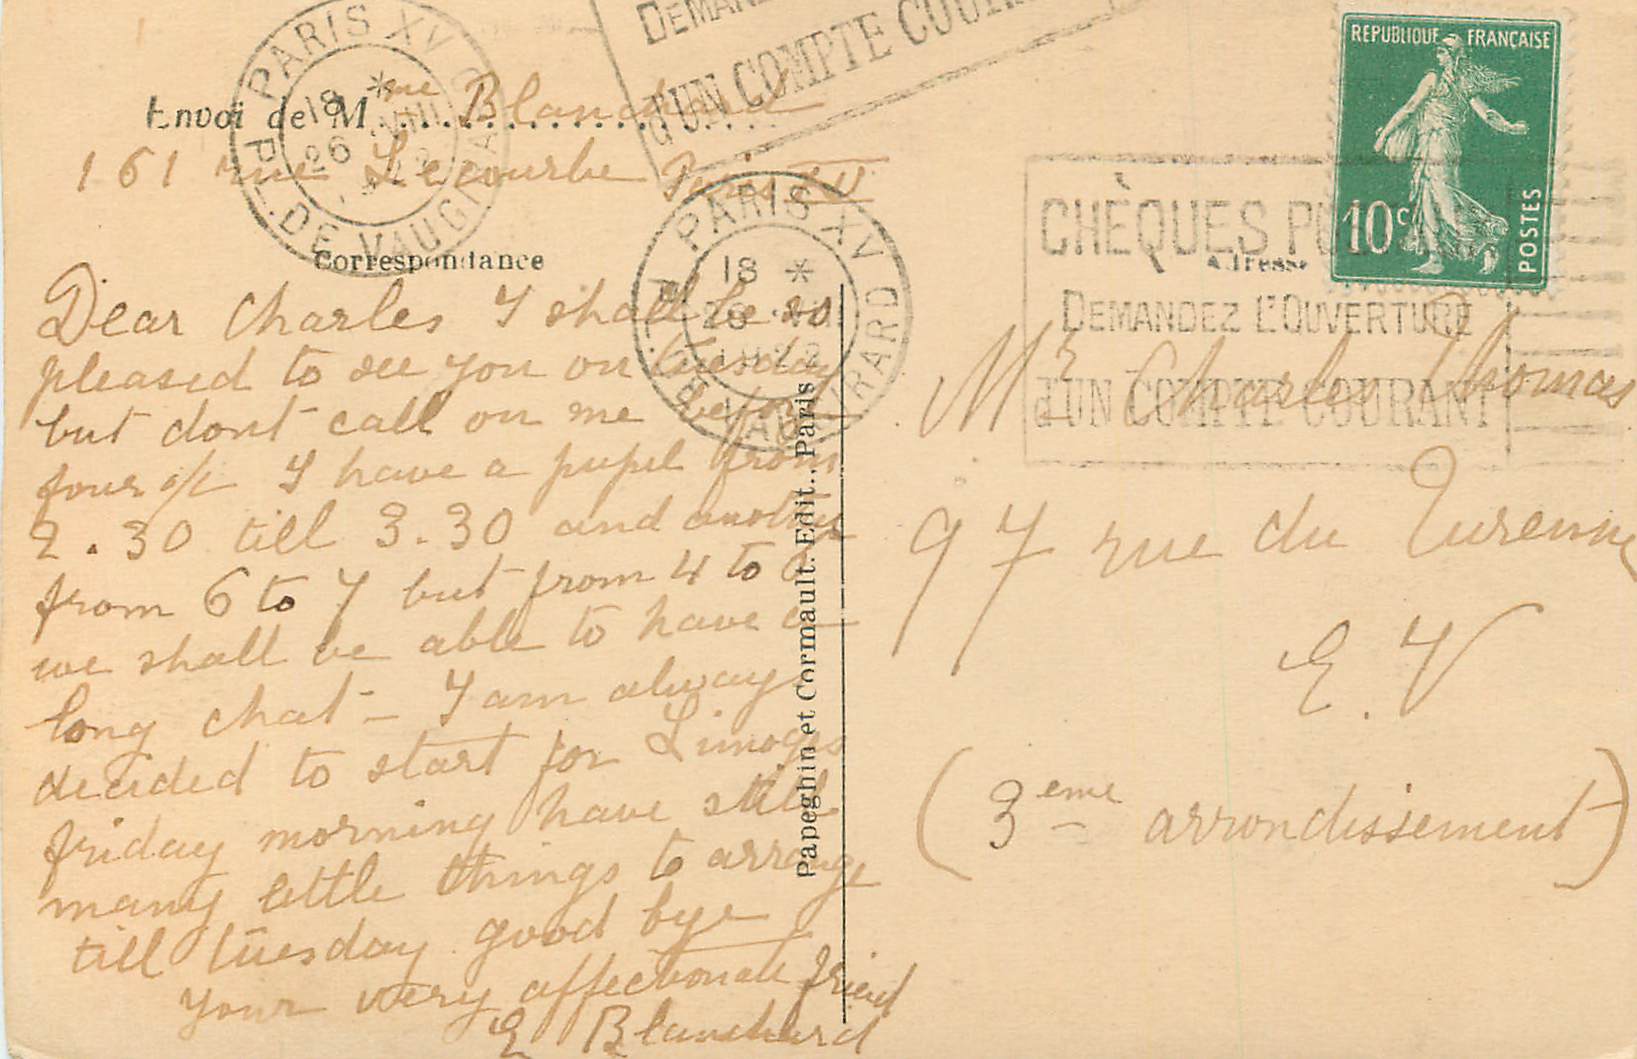 PARIS XV
18 *
26
PL. DE VAUGIRARD
D'UN COMPTE COURANT
Envoi de Mme Blanchard
161 rue Lecourbe Paris XV
Correspondance
Dear Charles I shall be so
pleased to see you on tuesday
but dont call on me before
four o/c I have a pupil from
2.30 till 3.30 and another
from 6 to 7 but from 4 to 6
we shall be able to have a
long chat - I am always
decided to start for Limoges
friday morning have still
many little things to arrange
till tuesday good bye
your very affectionate friend
E Blanchard
PARIS XV
18 *
R. DE VAUGIRARD
Papeghin et Cormault. Edit., Paris
REPUBLIQUE FRANÇAISE
10c
POSTES
CHÈQUES POSTAUX
DEMANDEZ L'OUVERTURE
D'UN COMPTE COURANT
Adresse
Mr Charles Thomas
97 rue du Turenne
E.V
(3eme arrondissement)